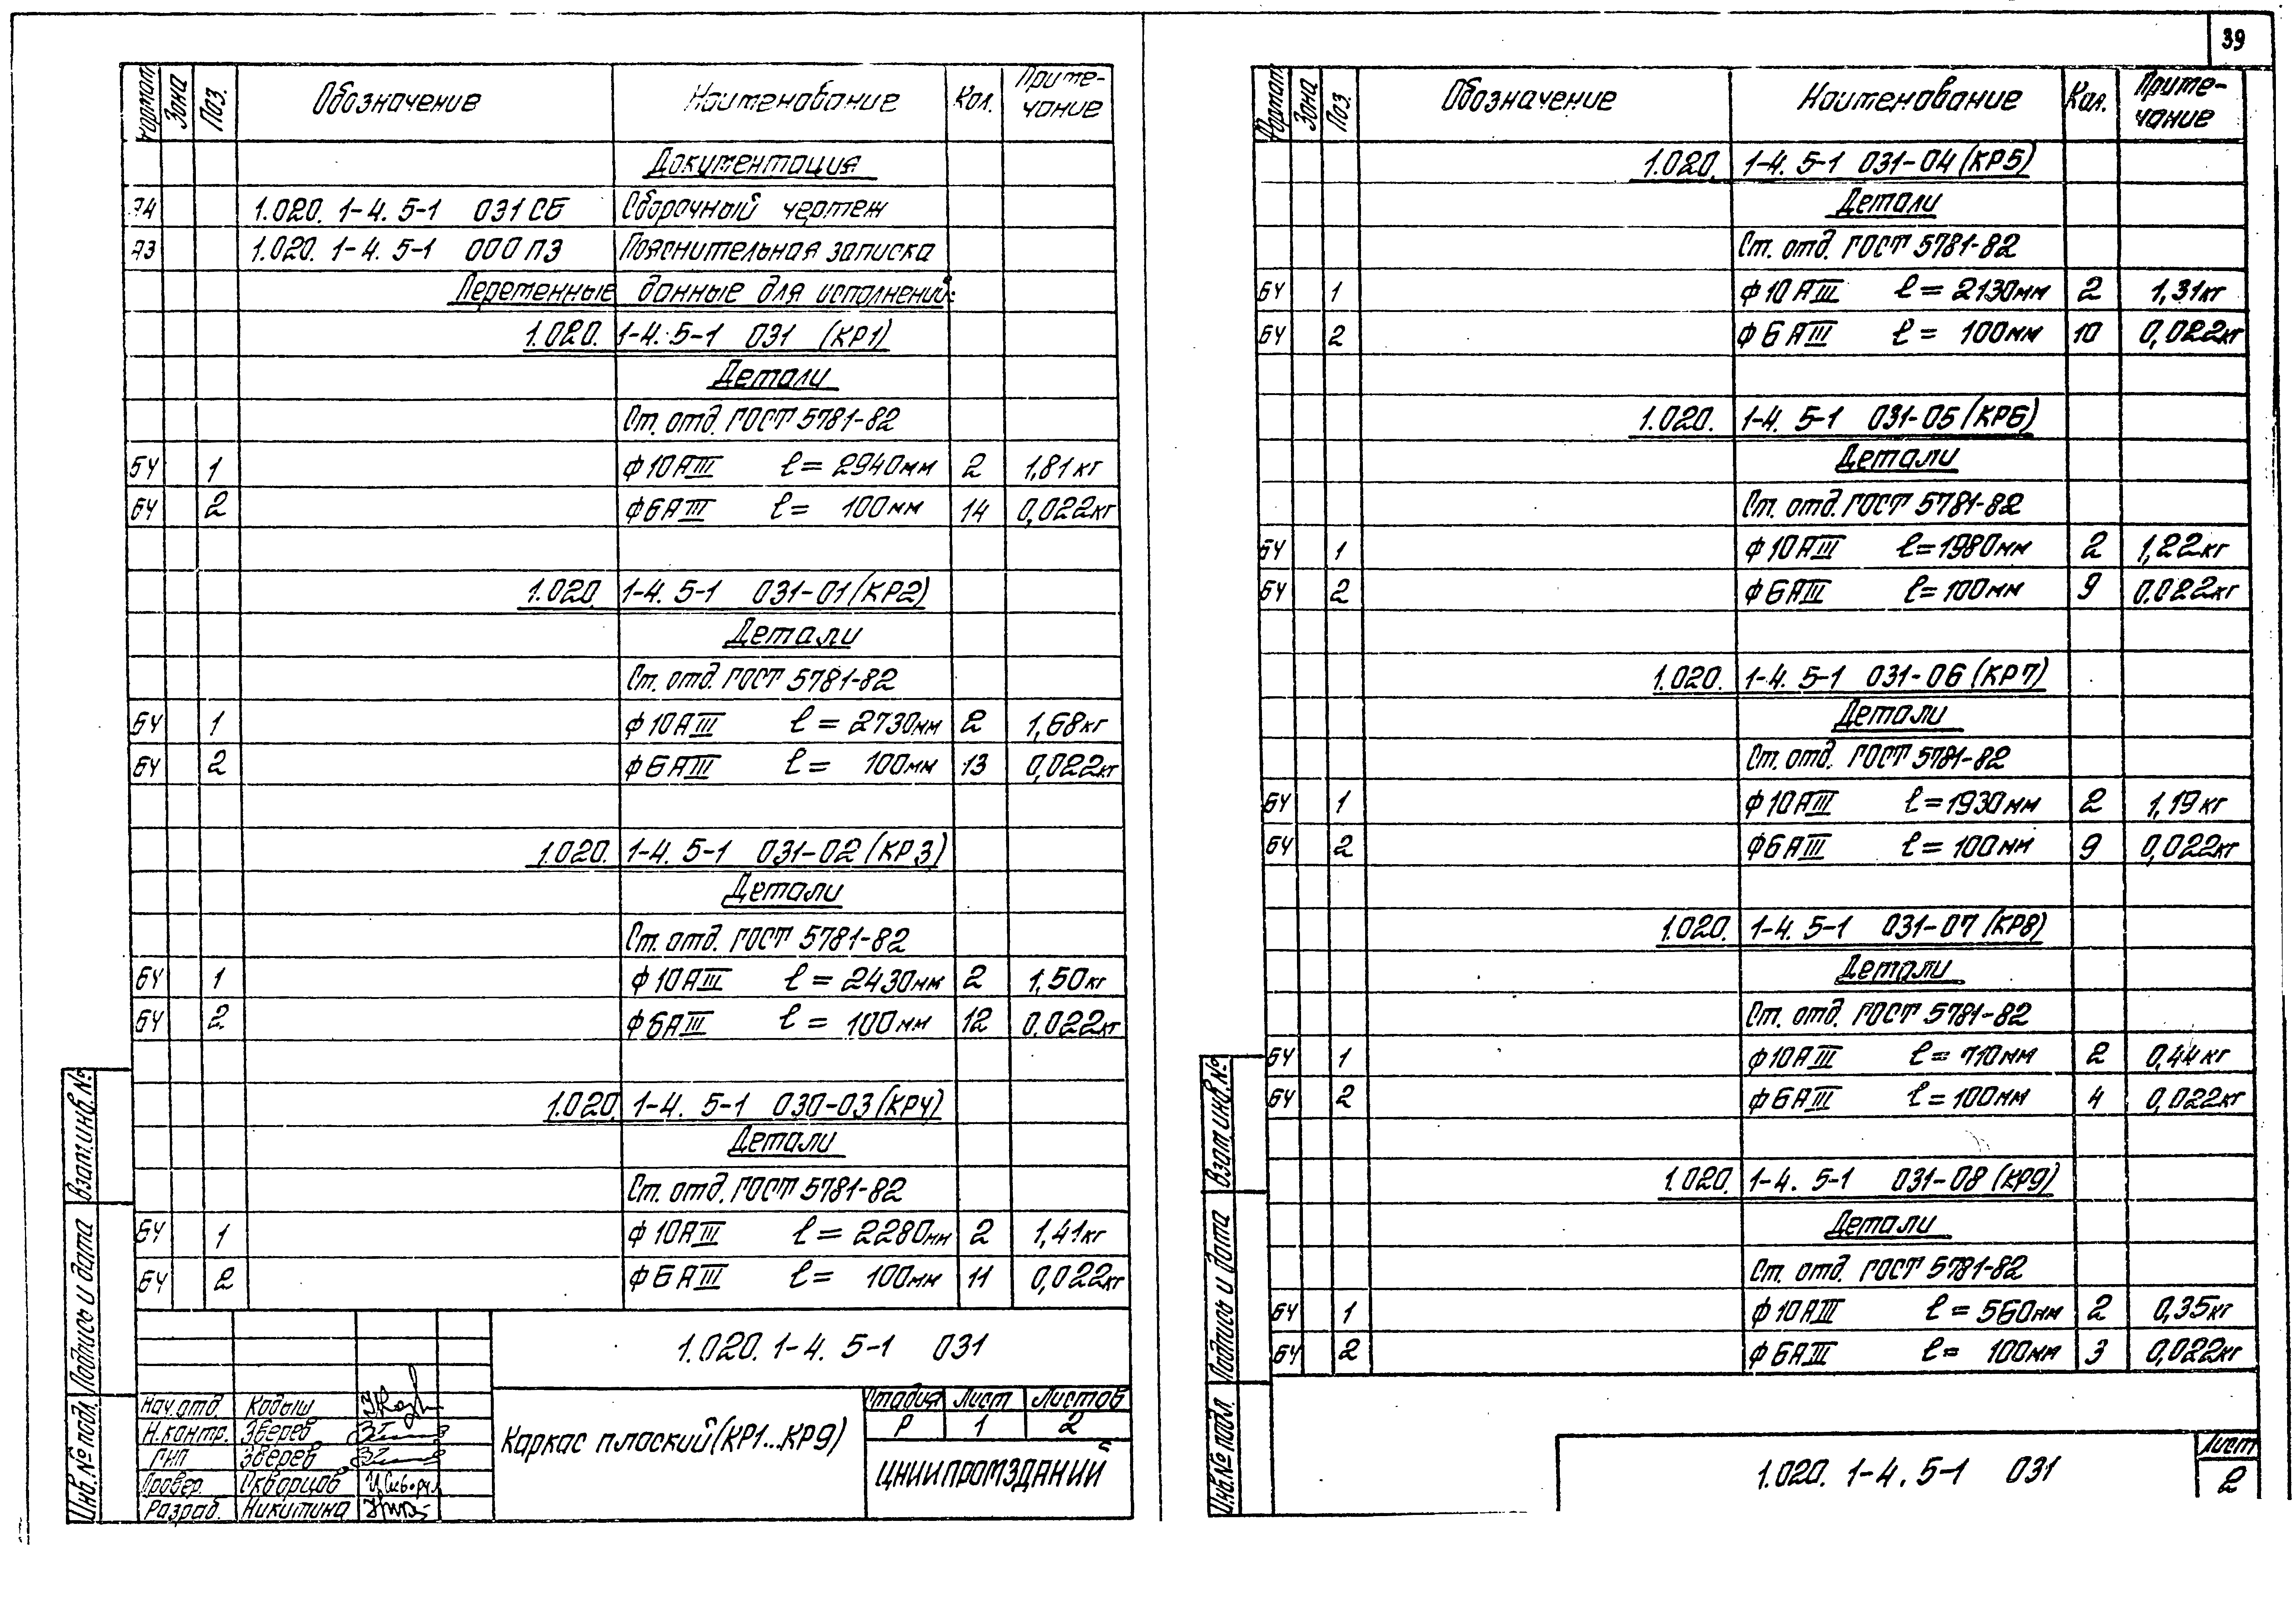 39
Формат Зона Поз. Обозначение Наименование Кол. Приме-
чание
Документация
А4 1.020.1-4. 5-1 031 СБ Сборочный чертеж
А3 1.020.1-4. 5-1 000 ПЗ Пояснительная записка
Переменные данные для исполнений:
1.020. 1-4. 5-1 031 (КР1)
Детали
Ст. отд. ГОСТ 5781-82
БЧ 1 Ф10АIII ℓ= 2940мм 2 1,81кг
БЧ 2 Ф6АIII ℓ= 100мм 14 0,022кг
1.020. 1-4. 5-1 031-01 (КР2)
Детали
Ст. отд. ГОСТ 5781-82
БЧ 1 Ф10АIII ℓ= 2730мм 2 1,68кг
БЧ 2 Ф6АIII ℓ= 100мм 13 0,022кг
1.020. 1-4. 5-1 031-02 (КР3)
Детали
Ст. отд. ГОСТ 5781-82
БЧ 1 Ф10АIII ℓ= 2430мм 2 1,50кг
БЧ 2 Ф6АIII ℓ= 100мм 12 0.022кг
1.020. 1-4. 5-1 030-03 (КР4)
Детали
Ст. отд. ГОСТ 5781-82
БЧ 1 Ф10АIII ℓ= 2280мм 2 1,41кг
БЧ 2 Ф6АIII ℓ= 100мм 11 0,022кг
1.020.1-4. 5-1 031
Нач.отд. Кодыш
Н.контр. Зверев
ГИП Зверев
Провер. Скворцов
Разраб. Никитина
Каркас плоский (КР1...КР9)
Стадия Лист Листов
Р 1 2
ЦНИИПРОМЗДАНИЙ
Взам.инв.№
Подпись и дата
Инв.№ подл.
Формат Зона Поз. Обозначение Наименование Кол. Приме-
чание
1.020. 1-4. 5-1 031-04 (КР5)
Детали
Ст. отд. ГОСТ 5781-82
БЧ 1 Ф10АIII ℓ= 2130мм 2 1,31кг
БЧ 2 Ф6АIII ℓ= 100мм 10 0,022кг
1.020. 1-4. 5-1 031-05 (КР6)
Детали
Ст. отд. ГОСТ 5781-82
БЧ 1 Ф10АIII ℓ=1980мм 2 1,22кг
БЧ 2 Ф6АIII ℓ=100мм 9 0.022кг
1.020. 1-4. 5-1 031-06 (КР7)
Детали
Ст. отд. ГОСТ 5781-82
БЧ 1 Ф10АIII ℓ=1930мм 2 1,19кг
БЧ 2 Ф6АIII ℓ=100мм 9 0,022кг
1.020. 1-4. 5-1 031-07 (КР8)
Детали
Ст. отд. ГОСТ 5781-82
БЧ 1 Ф10АIII ℓ= 710мм 2 0,44кг
БЧ 2 Ф6АIII ℓ=100мм 4 0,022кг
1.020. 1-4. 5-1 031-08 (КР9)
Детали
Ст. отд. ГОСТ 5781-82
БЧ 1 Ф10АIII ℓ= 560мм 2 0,35кг
БЧ 2 Ф6АIII ℓ= 100мм 3 0,022кг
1.020. 1-4. 5-1 031
Лист
2
Взам.инв.№
Подпись и дата
Инв.№ подл.